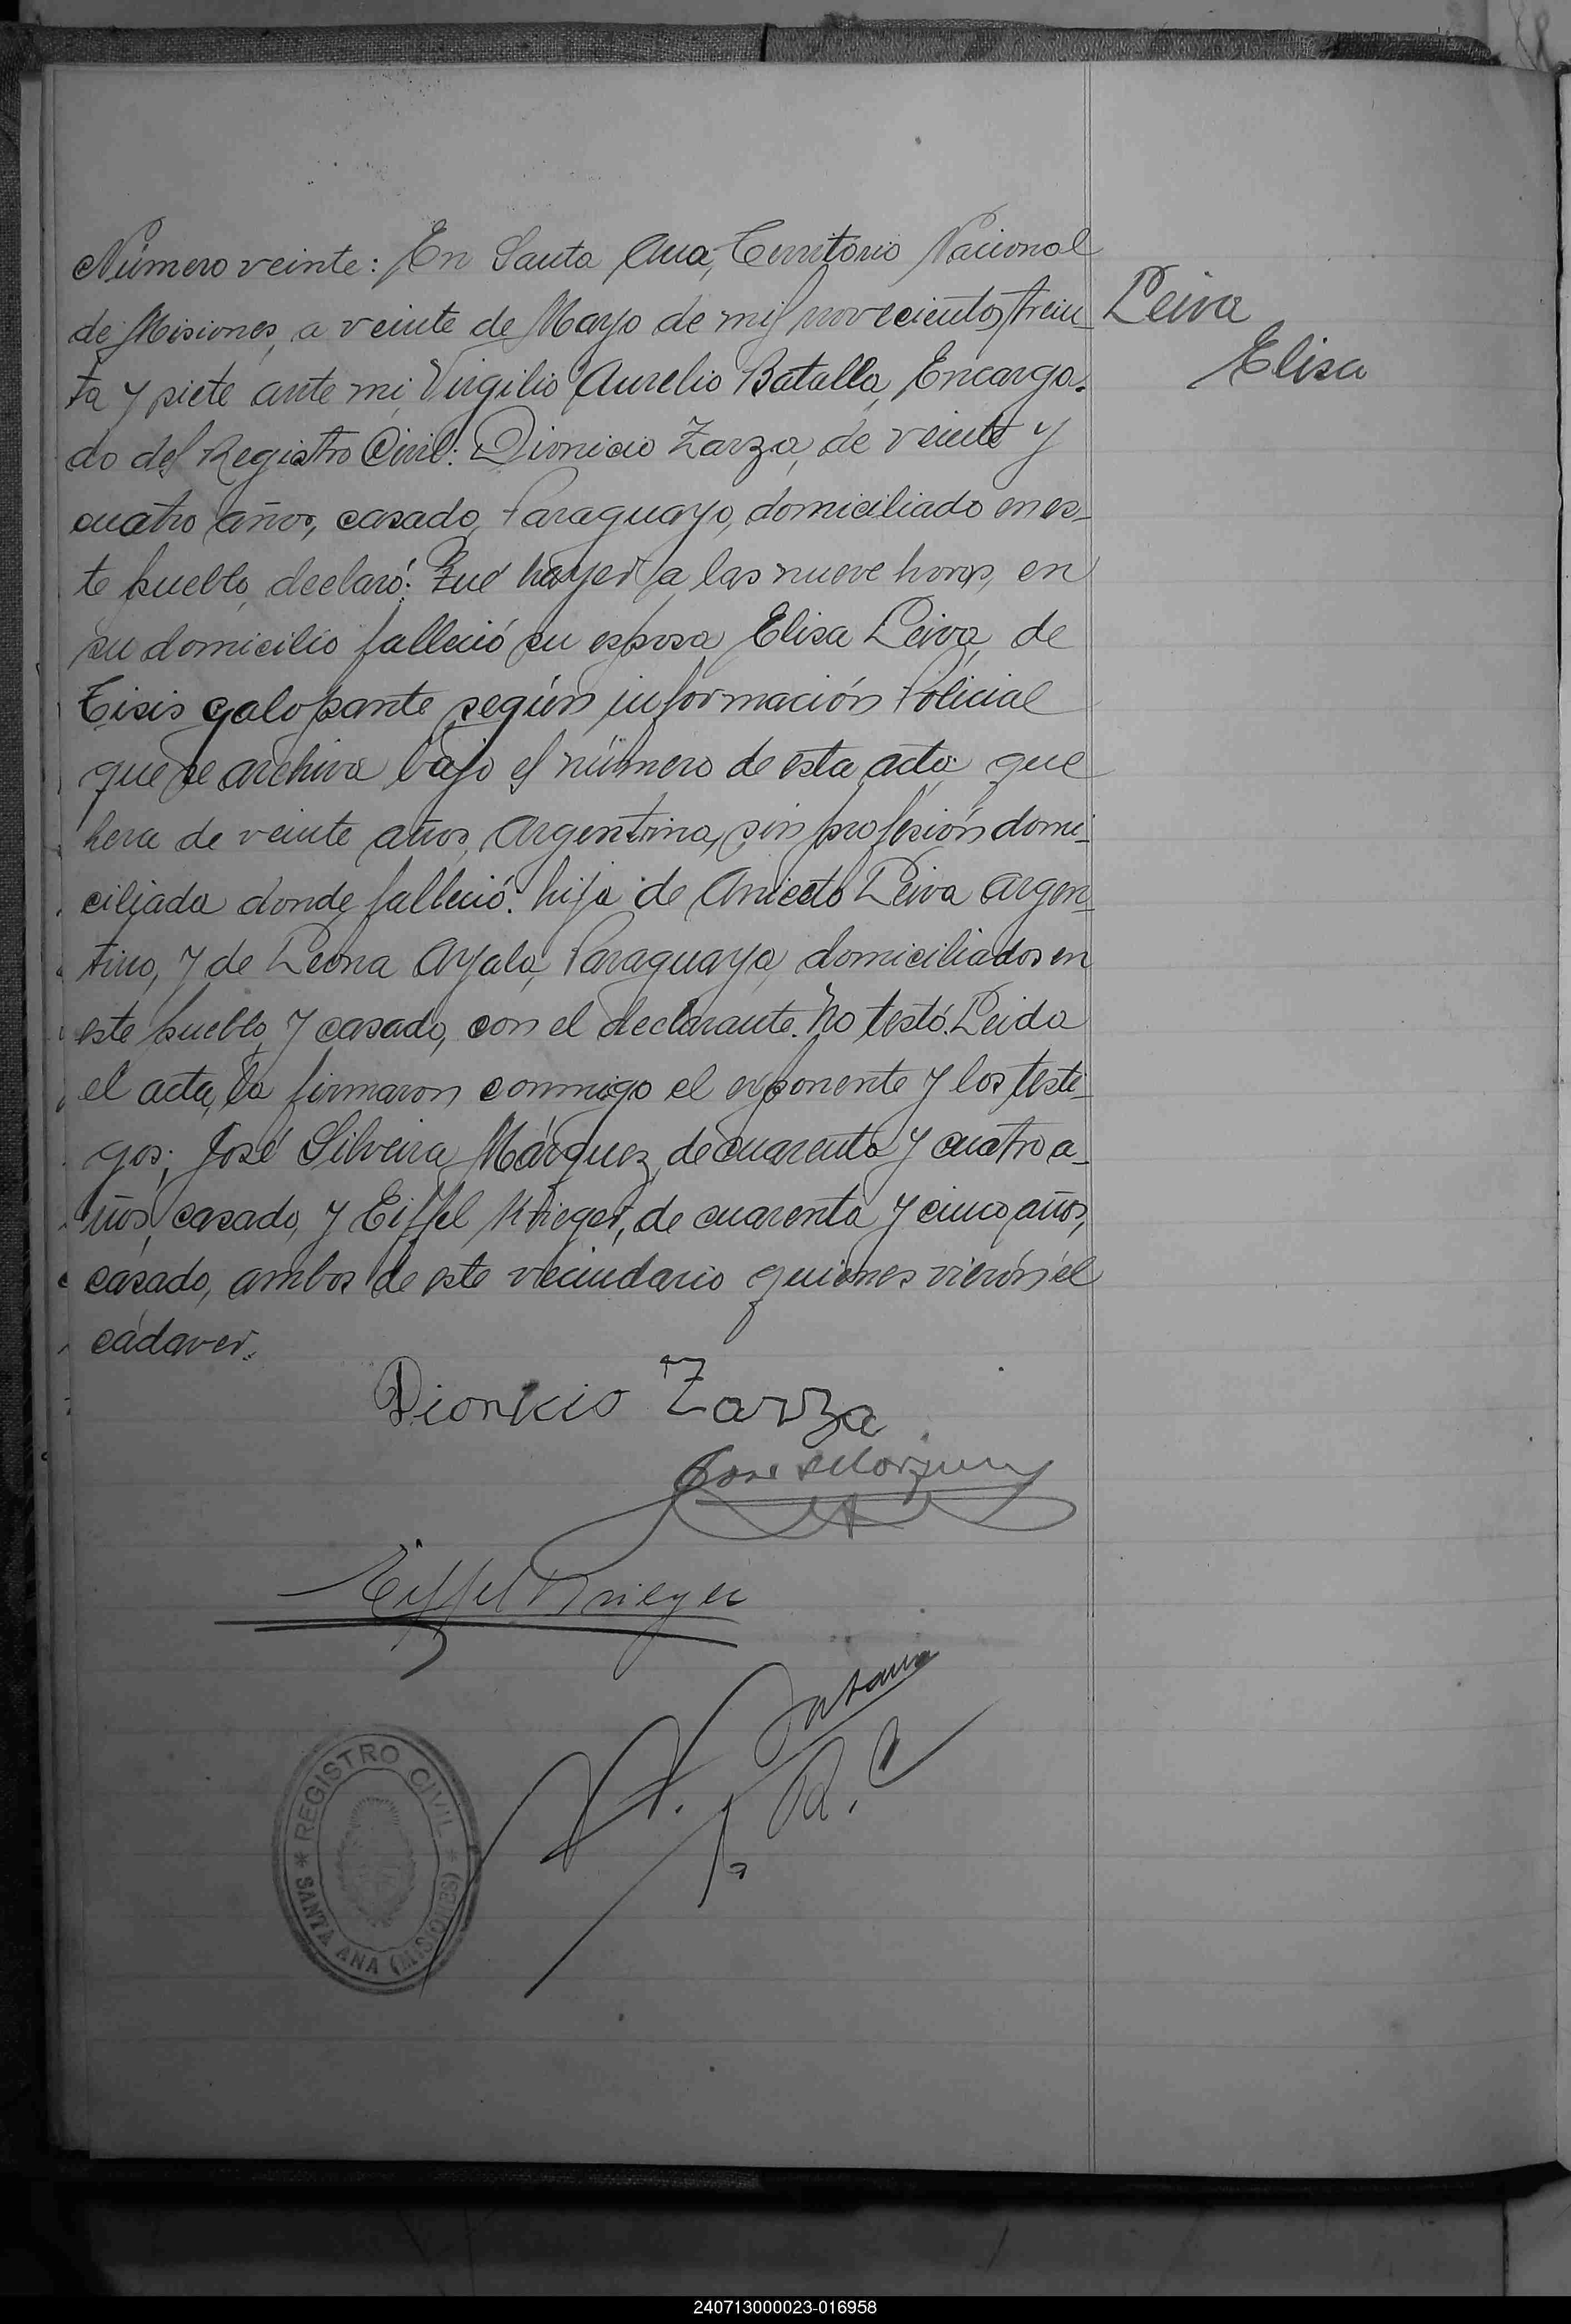 Número veinte: En Santa Ana, Territorio Nacional
de Misiones, a veinte de Mayo de mil novecientos trein_
ta y siete ante mi, Virgilio Aurelio Batalla, Encarga-
do del Registro Civil: Dionicio Zarza, de veinte y
cuatro años, casado, Paraguayo, domiciliado en es_
te pueblo, declaró: Que hayer a las nueve horas, en
su domicilio falleció su esposa Elisa Leiva, de
Tisis galopante según información Policial
que se archiva bajo el número de esta acta; que
hera de veinte años, Argentina, sin profesión domi_
ciliada donde falleció: hija de Aniceto Leiva Argen_
tino, y de Leona Ayala, Paraguaya, domiciliados en
este pueblo, y casada, con el declarante. No testó. Leida
el acta, la firmaron conmigo el exponente y los testi_
gos; José Silveira Márquez, de cuarenta y cuatro a_
ños, casado, y Eiffel Krieger, de cuarenta y cinco años,
casado, ambos de este vecindario quienes vierón el
cádaver.
Leiva
Elisa
Dionicio Zarza
Jose S Marquez
Eiffel Krieger
R. C
REGISTRO CIVIL
* SANTA ANA (MISIONES) *
240713000023-016958